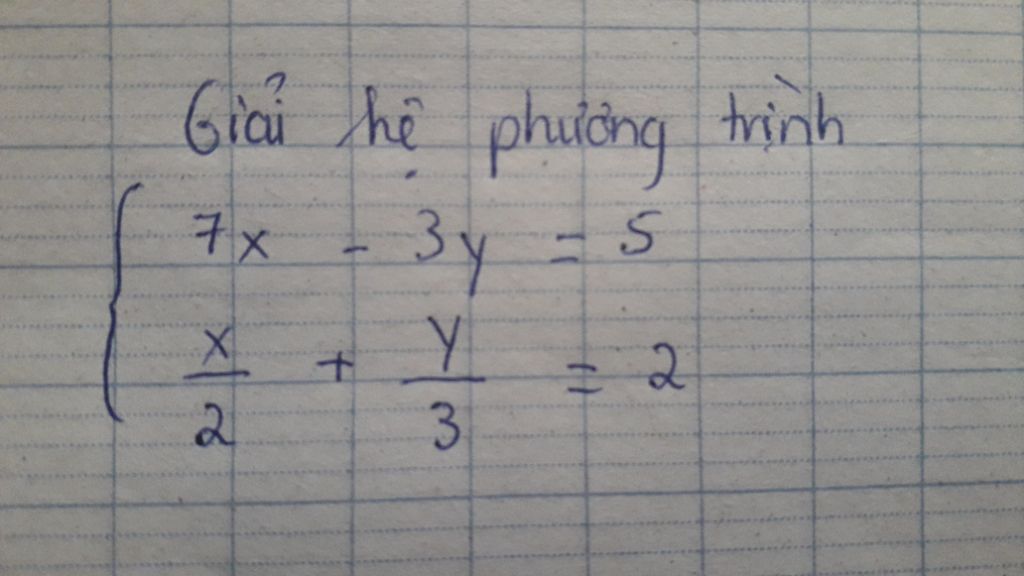 Giải hệ phương trình
7x - 3y = 5
x/2 + y/3 = 2